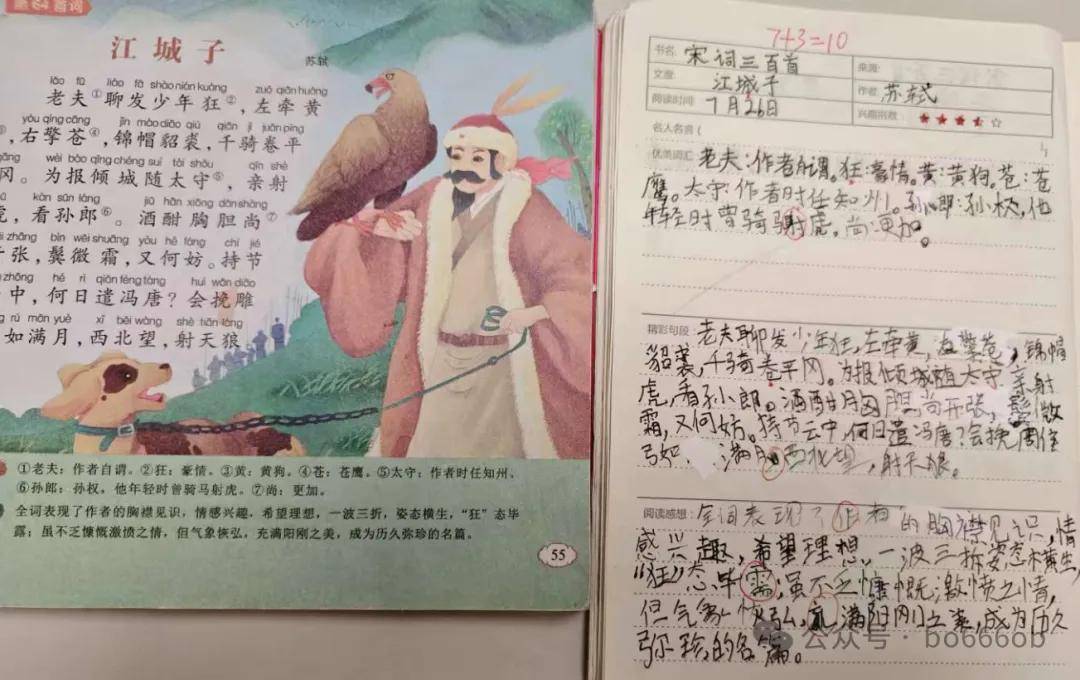 第64首词
江城子
苏轼
lǎo fū liáo fā shào nián kuáng zuǒ qiān huáng
老夫①聊发少年狂②，左牵黄
yòu qíng cāng jǐn mào diāo qiú qiān jì juǎn píng
，右擎苍④，锦帽貂裘，千骑卷平
gāng wèi bào qīng chéng suí tài shǒu qīn shè
冈。为报倾城随太守⑤，亲射
kàn sūn láng jiǔ hān xiōng dǎn shàng
虎，看孙郎⑥。酒酣胸胆尚⑦
zhāng bìn wēi shuāng yòu hé fáng chí jié
开张，鬓微霜，又何妨。持节
zhōng hé rì qiǎn féng táng huì wǎn diāo
中，何日遣冯唐？会挽雕
rú mǎn yuè xī běi wàng shè tiān láng
如满月，西北望，射天狼
①老夫：作者自谓。②狂：豪情。③黄：黄狗。④苍：苍鹰。⑤太守：作者时任知州。
⑥孙郎：孙权，他年轻时曾骑马射虎。⑦尚：更加。
全词表现了作者的胸襟见识，情感兴趣，希望理想，一波三折，姿态横生，“狂”态毕
露；虽不乏慷慨激愤之情，但气象恢弘，充满阳刚之美，成为历久弥珍的名篇。
55
7+3=10
书名： 宋词三百首 来源：
文章： 江城子 作者： 苏轼
阅读时间： 7月26日 兴趣指数： ★★★★☆
名人名言（
优美词汇 老夫：作者自谓。狂：豪情。黄：黄狗。苍：苍
鹰。太守：作者时任知州。孙郎：孙权，他
年轻时曾骑射虎。尚：更加。
精彩句段： 老夫聊发少年狂，左牵黄，右擎苍，锦帽
貂裘，千骑卷平冈。为报倾城随太守 亲射
虎，看孙郎。酒酣胸胆尚开张，鬓微
霜，又何妨。持节云中，何日遣冯唐？会挽
弓如 满月 西北望，射天狼。
阅读感想： 全词表现了作者的胸襟见识，情
感兴趣，希望理想，一波三折姿态横生，
“狂”态毕露；虽不乏慷慨激愤之情，
但气象恢弘，充满阳刚之美，成为历久
弥珍的名篇。
公众号 · bo6660b